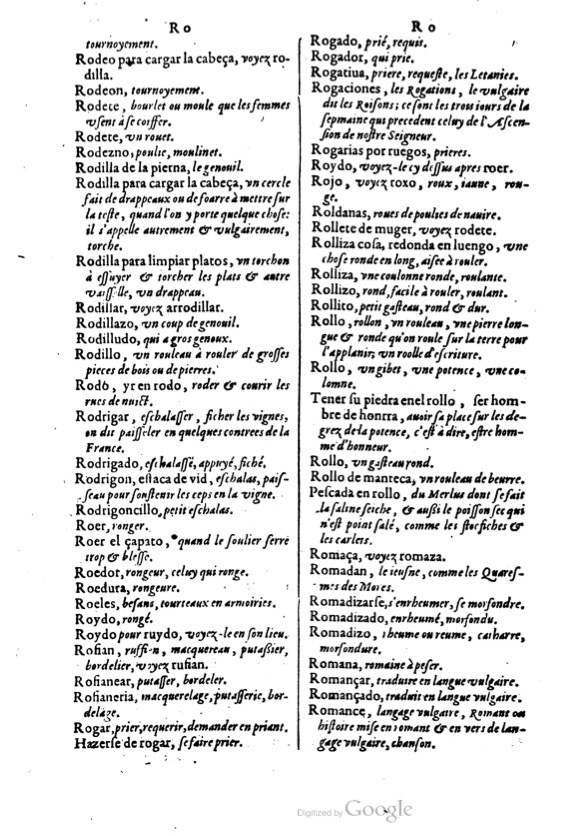 Ro
tournoyement.
Rodeo para cargar la cabeça, voyez ro-
dilla.
Rodeon, tournoyement.
Rodete, bourlet ou moule que les femmes
vsent à se coiffer.
Rodete, vn rouet.
Rodezno, poulie, moulinet.
Rodilla de la pierna, le genouil.
Rodilla para cargar la cabeça, vn cercle
fait de drappeaux ou de foarre à mettre sur
la teste, quand l'on y porte quelque chose:
il s'appelle autrement & vulgairement,
torche.
Rodilla para limpiar platos, vn torchon
à essuyer & torcher les plats & autre
vaisselle, vn drappeau.
Rodillar, voyez arrodillar.
Rodillazo, vn coup de genouil.
Rodilludo, qui a gros genoux.
Rodillo, vn rouleau à rouler de grosses
pieces de bois ou de pierres.
Rodò, yr en rodo, roder & courir les
rues de nuict.
Rodrigar, eschalasser, ficher les vignes,
on dit paisseler en quelques contrees de la
France.
Rodrigado, eschalassé, appuyé, fiché.
Rodrigon, estaca de vid, eschalas, pais-
seau pour sonstenir les ceps en la vigne.
Rodrigoncillo, petit eschalas.
Roer, ronger.
Roer el çapato, quand le soulier serre
trop & blesse.
Roedor, rongeur, celuy qui ronge.
Roedura, rongeure.
Roeles, besans, tourteaux en armoiries.
Roydo, rongé.
Roydo pour ruydo, voyez-le en son lieu.
Rofian, ruffien, macquereau, putassier,
bordelier, voyez rufian.
Rofianear, putasser, bordeler.
Rofianeria, macquerelage, putasserie, bor-
delage.
Rogar, prier, requerir, demander en priant.
Hazerse de rogar, se faire prier.
Ro
Rogado, prié, requis.
Rogador, qui prie.
Rogatiua, priere, requeste, les Letanies.
Rogaciones, les Rogations, le vulgaire
dit les Roisons; ce sont les trois iours de la
sepmaine qui precedent celuy de l'Ascen-
sion de nostre Seigneur.
Rogarias por ruegos, prieres.
Roydo, voyez-le cy dessus apres roer.
Rojo, voyez roxo, roux, iaune, rou-
ge.
Roldanas, roues de poulies de nauire.
Rollete de muger, voyez rodete.
Rolliza cosa, redonda en luengo, vne
chose ronde en long, aisee à rouler.
Rolliza, vne coulonne ronde, roulante.
Rollizo, rond, facile à rouler, roulant.
Rollito, petit gasteau, rond & dur.
Rollo, rollon, vn rouleau, vne pierre lon-
gue & ronde qu'on roule sur la terre pour
l'applanir; vn roolle d'escriture.
Rollo, vn gibet, vne potence, vne co-
lomne.
Tener su piedra en el rollo, ser hom-
bre de honrra, auoir sa place sur les de-
grez de la potence, c'est à dire, estre hom-
me d'honneur.
Rollo, vn gasteau rond.
Rollo de manteca, vn rouleau de beurre.
Pescada en rollo, du Merlus dont se fait
la saline seiche, & aussi le poisson sec qui
n'est point salé, comme les stocfiches &
les carlets.
Romaça, voyez romaza.
Romadan, le ieusne, comme les Quares-
mes des Mores.
Romadizarse, s'enrheumer, se morfondre.
Romadizado, enrheumé, morfondu.
Romadizo, rheume ou reume, catharre,
morfondure.
Romana, romaine à peser.
Romançar, traduire en langue vulgaire.
Romançado, traduit en langue vulgaire.
Romance, langage vulgaire, Romant ou
histoire mise en romant & en vers de lan-
gage vulgaire, chanson.
Digitized by Google